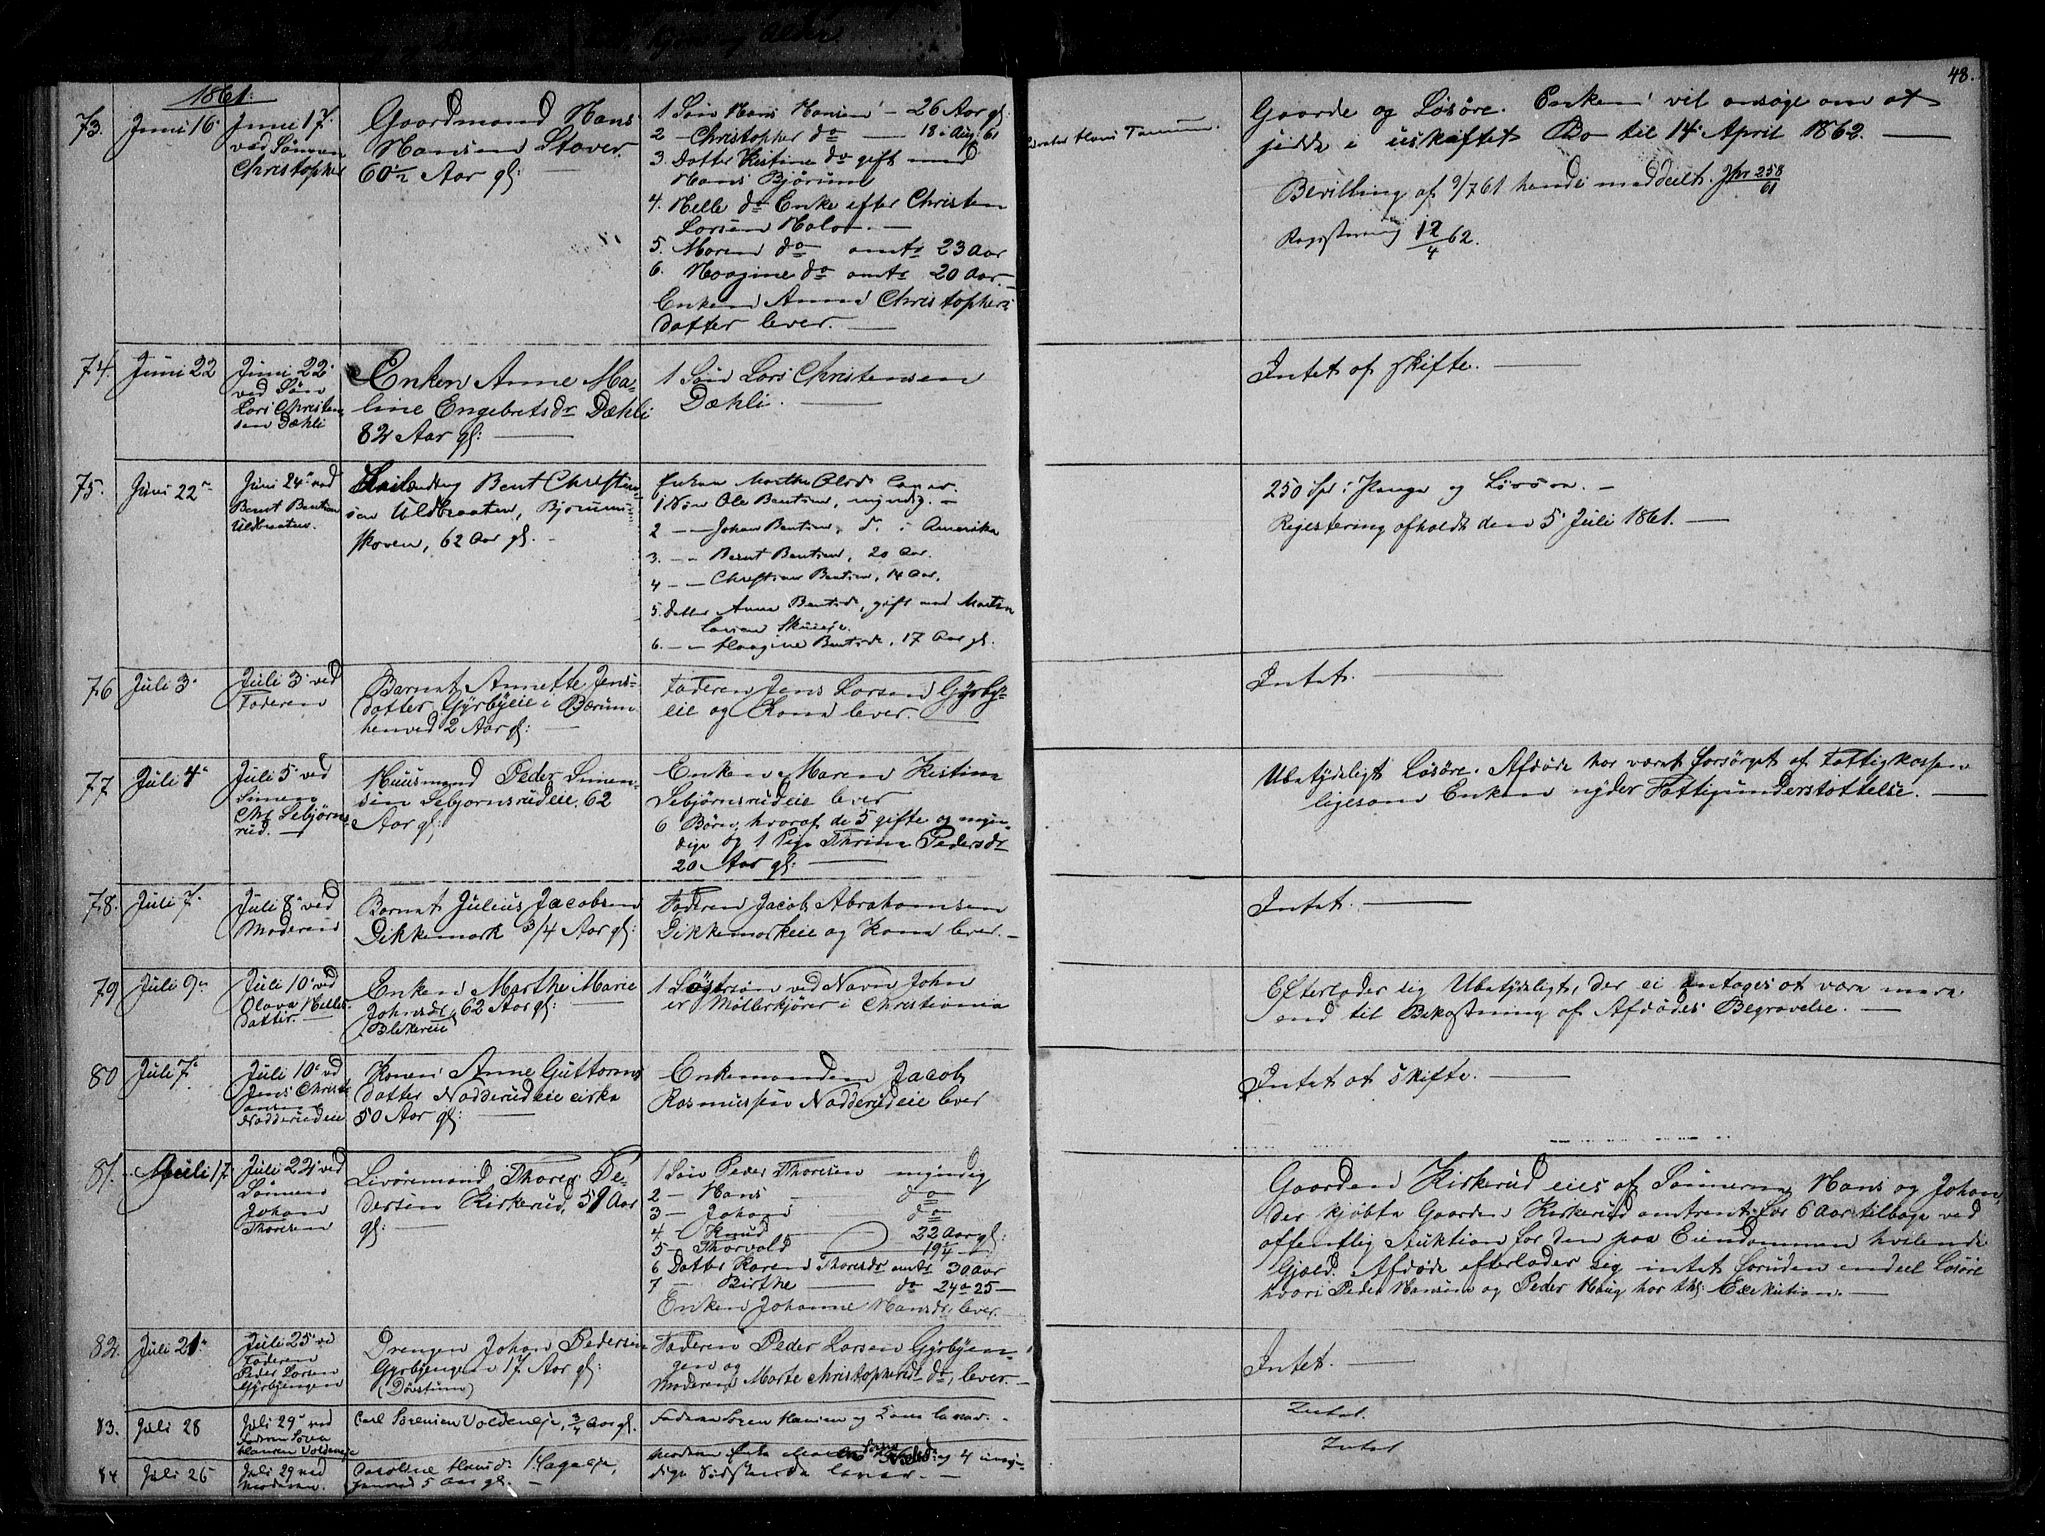 48.
1861.
73. Juni 16
Juni 17
ved Sønnen
Christopher
Gaardmand Hans
Hansen Staver
60½ Aar gl:
1 Søn Hans Hansen – 26 Aar gl:
2 – Christopher do – 18 i Aug 61
3. Datter Kistine do gift med
Hans Bjørum
4. Helle do Enke efter Christen
Larsen
5. Maren do omtr 23 Aar
6. Haagine do omtr 20 Aar
Enken Anne Christophers
datter lever.
Hans Tanum.
Gaarde og Løsøre. Enken vil ansøge om at
sidde i uskiftet Bo til 14 April 1862.
Bevilling af 9/7 61 hende meddeelt. Jhr 258/61
Registrering 12/4 62.
74. Juni 22
Juni 22
ved Søn
Lars Christen
sen Dæhli
Enken Anne Ma-
line Engebretsdr Dæhli
82 Aar gl:
1 Søn Lars Christensen
Dæhli.
Intet at skifte.
75. Juni 22
Juni 24 ved
Bernt Bentsen
Uldbraaten.
Bent Christian-
sen Uldbraaten, Bjørums-
skoven, 62 Aar gl.
Enken Marthe Olsd. lever.
1 Søn Ole Bentsen, myndig.
2 – – Johan Bentsen, do i Amerika
3. – – Bernt Bentsen, 20 Aar.
4 – – Christian Bentsen, 14 Aar.
5. Datter Anne Bentsd., gift med Martin
Larsen Skuieje.
6. – – Haagine Bentsd., 17 Aar gl.
250 Spd i Penge og Løsøre.
Registering afholdt den 5 Juli 1861.
76 Juli 3
Juli 3 ved
Faderen
Barnet Annette Jens-
datter Gyrbyeie i Bærum
henved 2 Aar gl:
Faderen Jens Larsen Gyrby-
eie og Kone lever.
Intet.
77 Juli 4
Juli 5 ved
Simen
Chr Sebjørns
rud.
Huusmand Peder Simen-
sen Sebjørnsrudeie, 62
Aar gl:
Enken Maren Kistine
Sebjørnsrudeie lever
6 Børn, hvoraf de 5 gifte og myn-
dige og 1 Pige Thrine Pedersdr
20 Aar gl:
Ubetydeligt Løsøre. Afdøde har været forsørget af Fattigkassen
ligesom Enken nyder Fattigunderstøttelse.
78. Juli 7
Juli 8 ved
Moderen
Barnet Julius Jacobsen
Dikkemark 3/4 Aar gl:
Faderen Jacob Abrahamsen
Dikkemarkeie og Kone lever.
Intet.
79 Juli 9
Juli 10 ved
Olava Helles-
datter.
Enken Marthe Marie
Johnsdr, 62 Aar gl:
Blekereie
1 Søstersøn ved Navn John
er Møllerkjører i Christiania
Efterlader sig Ubetydeligt, der ei antages at være mere
end til Bekostning af Afdødes Begravelse.
80 Juli 7
Juli 10 ved
Jens Christi
ansen
Nadderudeie
Konen Anne Guttorms
datter Nadderudeie cirka
50 Aar gl:
Enkemanden Jacob
Rasmussen Nadderudeie lever
Intet at skifte.
81. Juli 17
Juli 22 ved
Sønnen
Johan
Thoresen
Livøremand Thorer Pe-
dersen Kirkerud, 59 Aar
gl:
1 Søn Peder Thoresen myndig
2 – Hans – do
3 – Johan – do
4 – Knud – 22 Aar gl:
5 – Thorvald – 19½ –
6 Datter Karen Thoresdr omtr 30 Aar
7 – Birthe – do 24 a 25 –
Enken Johanne Hansdr lever.
Gaarden Kirkerud eies af Sønnerne Hans og Johan,
der kjøbte Gaarden Kirkerud omtrent for 6 Aar tilbage ved
offentlig Auktion for den paa Eiendommen hvilende
Gjæld. Afdøde efterlader sig intet foruden endeel Løsøre
hvori Peder Hansen og Peder Haug har Exekution.
82. Juli 21
Juli 25 ved
Faderen
Peder Larsen
Gyrbyengen
Drengen Johan Pedersen
Gyrbyengen 17 Aar gl:
(Døvstum)
Faderen Peder Larsen Gyrbyen-
gen og
Moderen Marte Christophersdr do, lever.
Intet.
83. Juli 28
Juli 29 ved
Faderen Søren
Hansen Voldeneje
Carl Sørensen Voldeneje, 3/4 Aar gl.
Faderen Søren Hansen og Kone lever.
Intet.
84 Juli 26
Juli 29 ved
Moderen.
Caroline
5 Aar gl.
Moderen Enke og 4 umyn-
dige Sødskende lever.
Intet